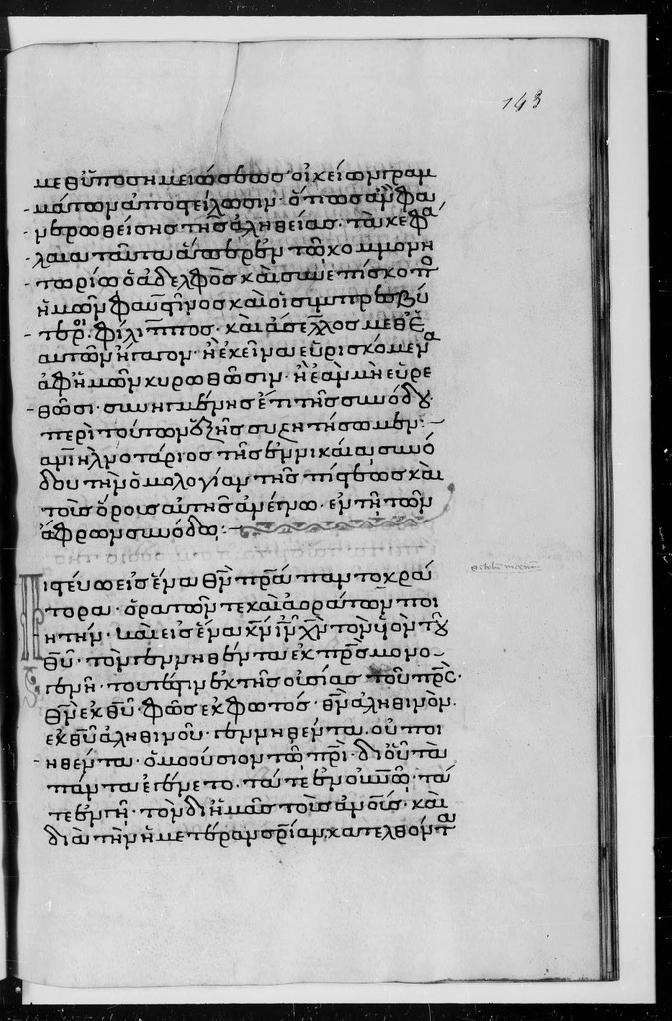 143
μεθ ὑποσημειώσεως οἰκείων γραμ
μάτων ἀποστείλωσιν· ὅπως ἂν φα
νερωθείσης τῆς ἀληθείας· τὰ κεφά
λαια ταῦτα ἅπερ ἐν τῷ κομμονη
τωρίω ὁ ἀδελφὸς καὶ συνεπίσκοπ
ἡμῶν φαυστίνος καὶ οἱ συμπρεσβύ
τερ· φίλιππος· καὶ ἄσελλος μεθ ἑ
αυτῶν ἤγαγον· ἢ ἐκεῖνα εὑρισκόμενα
ἀφ ἡμῶν κυρωθῶσιν· ἢ ἐὰν μὴ εὑρε
θῶσι· συνηγμένης ἔτι τῆς συνόδου
περὶ τούτων ἑξῆς συζητήσωμεν:
δανιὴλ νοτάριος τῆς ἐν νικαία συνό
δου τὴν ὁμολογίαν τῆς πίστεως καὶ
τοὺς ὅρους αὐτῆς ἀνέγνω· ἐν τῇ τῶν
ἄφρων συνόδω:
Πιστεύω εἰς ἕνα θν πρα παντοκρά
τορα· ὁρατῶν τε καὶ ἀοράτων ποι
ητήν· καὶ εἰς ἕνα κν ιν χν τὸν υν τοῦ
θυ· τὸν γεννηθέντα ἐκ πρς μονο
γενῆ· τουτέστιν ἐκ τῆς οὐσίας τοῦ πρς·
θν ἐκ θυ· φῶς ἐκ φωτός· θν ἀληθινὸν·
ἐκ θυ ἀληθινοῦ· γεννηθέντα· οὐ ποι
ηθέντα· ὁμοούσιον τῷ πρι· δι οὗ τὰ
πάντα ἐγένετο· τά τε ἐν οὐνῷ· τά
τε ἐν γῇ· τὸν δι ἡμᾶς τοὺς ἀνους· καὶ
διὰ τὴν ἡμετέραν σρίαν κατελθόντα